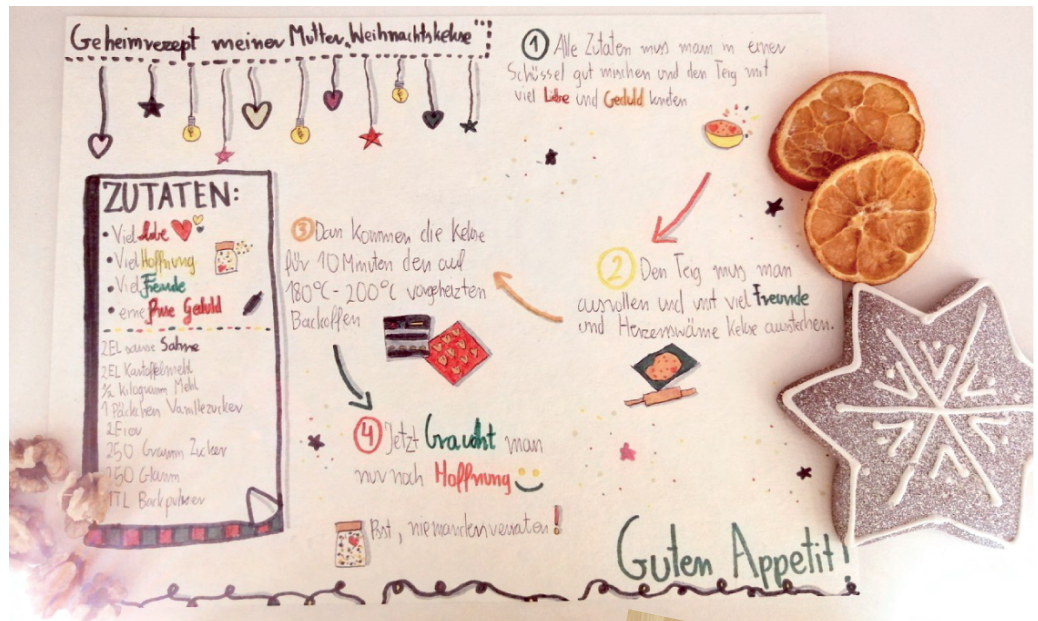 Geheimrezept meiner Mutter „Weihnachtskekse"
ZUTATEN:
• Viel Liebe
• Viel Hoffnung
• Viel Freude
• eine Prise Geduld
2EL saure Sahne
2EL Kartoffelmehl
½ kilogramm Mehl
1 Päckchen Vanillezucker
2Eier
250 Gramm Zucker
250 Gramm
1TL Backpulver
1 Alle Zutaten muss man in einer
Schüssel gut mischen und den Teig mit
viel Liebe und Geduld kneten
2 Den Teig muss man
ausrollen und mit viel Freunde
und Herzenswärme Kekse ausstechen.
3 Dan kommen die Kekse
für 10 Minuten den auf
180°C - 200°C vorgeheizten
Backoffen
4 Jetzt braucht man
nur noch Hoffnung
Psst, niemanden verraten!
Guten Appetit!